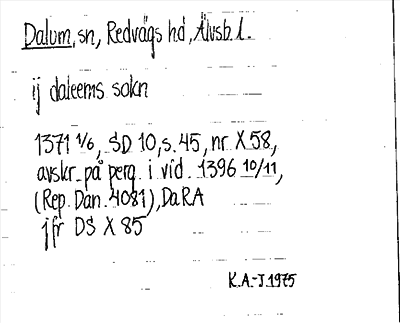 Dalum, sn, Redvägs hd, Älvsb. l.
ij daleems sokn
1371 1/6, SD 10, s. 45, nr X 58,
avskr. på perg. i vid. 1396 10/11,
(Rep. Dan. 4081), DaRA
jfr DS X 85
K.A.-J. 1975